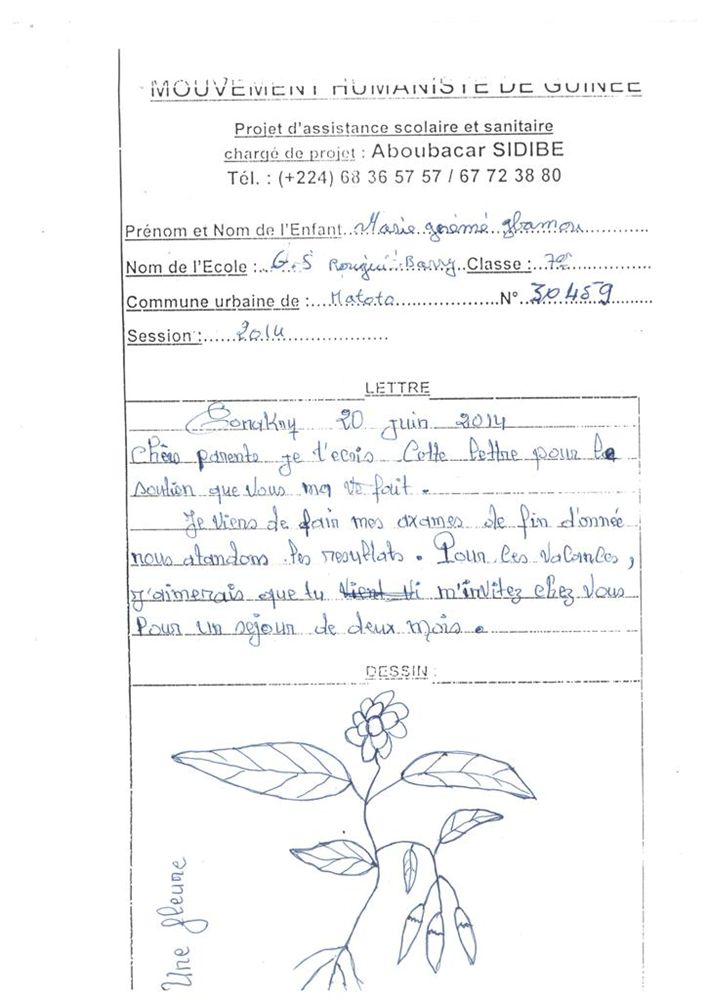 MOUVEMENT HUMANISTE DE GUINEE
Projet d'assistance scolaire et sanitaire
chargé de projet : Aboubacar SIDIBE
Tél. : (+224) 68 36 57 57 / 67 72 38 80
Prénom et Nom de l'Enfant Marie
Nom de l'Ecole : G.S Barry Classe : 7e
Commune urbaine de : Matoto N° 30459
Session : 2014
LETTRE
20 juin 2014
Chèrs parents je t'ecris Cette lettre pour le
soutien que Vous ma fait .
Je viens de fair mes axames de fin d'année
nous atandons les resultats . Pour les Vacances ,
j'aimerais que tu m'invitez chez Vous
Pour un sejour de deux mois .
DESSIN :
Une fleure